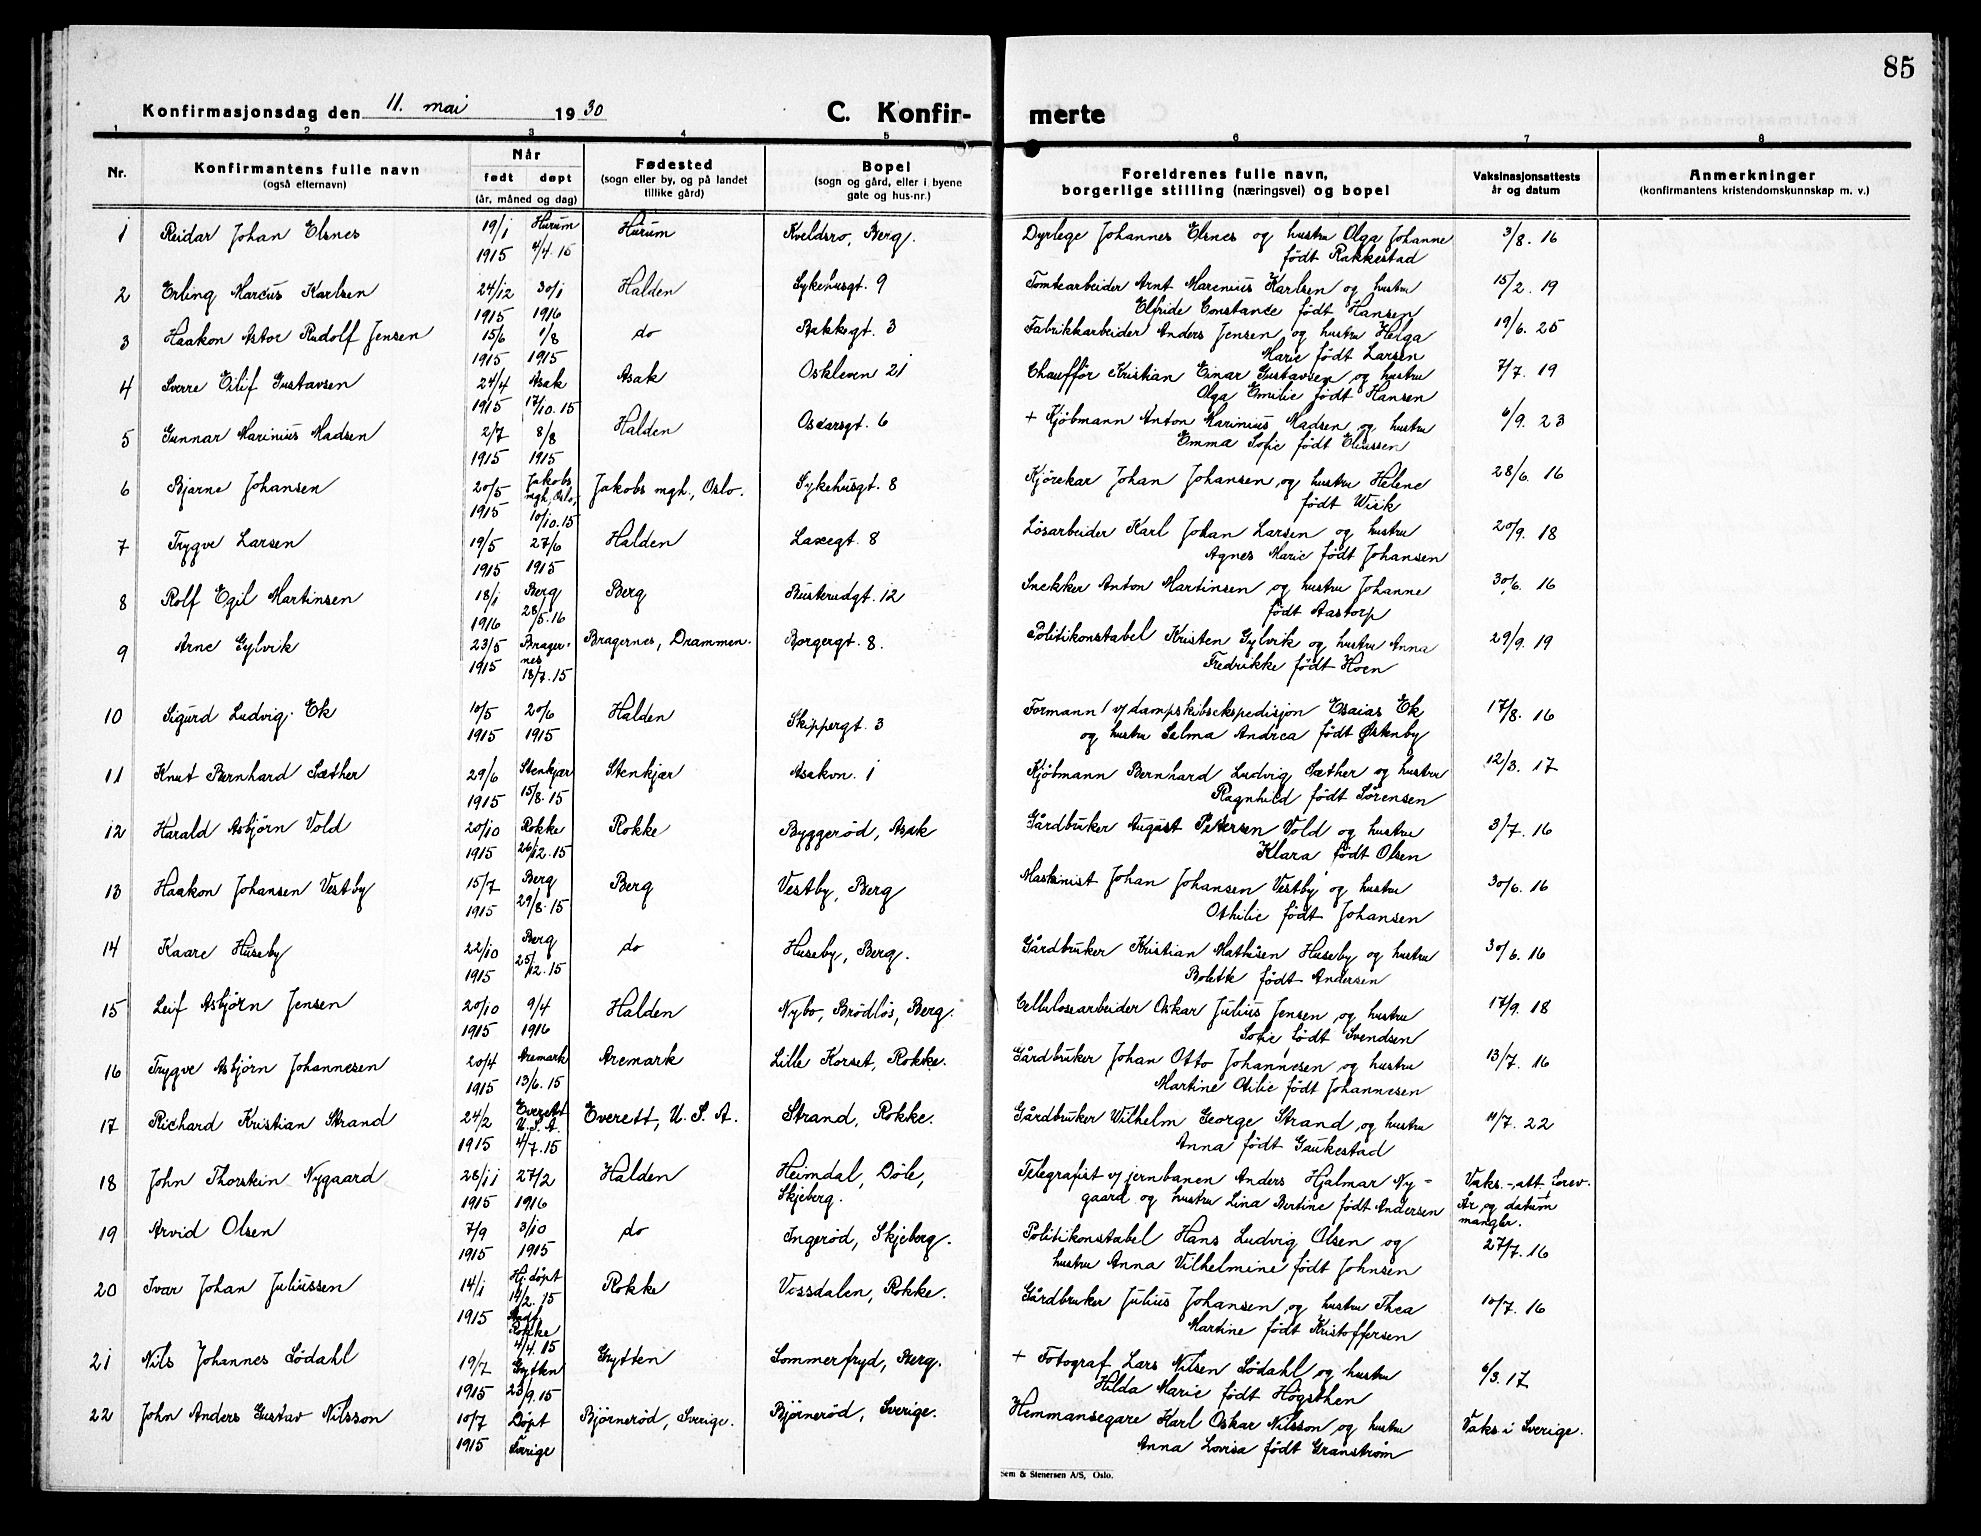 85
Konfirmasjonsdag den 11. mai 1930
C. Konfir-merte
1 2 3 4 5 6 7 8
Nr.
Konfirmantens fulle navn
(også efternavn)
Når
født døpt
(år, måned og dag)
Fødested
(sogn eller by, og på landet
tillike gård)
Bopel
(sogn og gård, eller i byene
gate og hus-nr.)
Foreldrenes fulle navn,
borgerlige stilling (næringsvei) og bopel
Vaksinasjonsattests
år og datum
Anmerkninger
(konfirmantens kristendomskunnskap m. v.)
1 Reidar Johan Elsnes 19/1 Hurum Hurum Kveldsro, Berg. Dyrlege Johannes Elsnes og hustru Olga Johanne 3/8. 16
1915 4/4.15 født Rakkestad
2 Erling Marcus Karlsen 24/12 30/1 Halden Sykehusgt. 9 Tomtearbeider Arnt Marenius Karlsen og hustru 15/2. 19
1915 1916 Elfride Constance født Hansen
3 Haakon Astor Rudolf Jensen 15/6 1/8 do Bakkegt. 3 Fabrikkarbeider Anders Jensen og hustru Helga 19/6. 25
1915 1915 Marie født Larsen
4 Sverre Eilif Gustavsen 24/4 Asak Asak Oskleven 21 Chauffør Kristian Einar Gustavsen og hustru 7/7. 19
1915 17/10.15 Olga Emilie født Hansen
5 Gunnar Marinius Madsen 2/7 8/8 Halden Oscarsgt. 6 + Kjøbmann Anton Marinius Madsen og hustru 6/9. 23
1915 1915 Emma Sofie født Eliassen
6 Bjarne Johansen 20/5 Jakobs mgh, Oslo, Jakobs mgh., Oslo. Sykehusgt. 8 Kjørekar Johan Johansen og hustru Helene 28/6. 16
1915 10/10.15 født Wiik
7 Trygve Larsen 19/5 27/6 Halden Laxegt. 8 Løsarbeider Karl Johan Larsen og hustru 20/9. 18
1915 1915 Agnes Marie født Johansen
8 Rolf Egil Martinsen 18/1 Berg Berg Busterudgt. 12 Snekker Anton Martinsen og hustru Johanne 30/6. 16
1916 28/5.16 født Aastorp
9 Arne Gylvik 23/5 Bragernes Bragernes, Drammen. Borgergt. 8. Politikonstabel Kristen Gylvik og hustru Anna 29/9. 19
1915 18/7.15 Fredrikke født Hoen
10 Sigurd Ludvig Ek 10/5 20/6 Halden Skippergt. 3 Formann v/ dampskibsekspedisjon Esaias Ek 17/8. 16
1915 1915 og hustru Selma Andrea født Østenby
11 Knut Bernhard Sæther 29/6 Stenkjær Stenkjær Asakvn. 1 Kjøbmann Bernhard Ludvig Sæther og hustru 12/3. 17
1915 15/8.15 Ragnhild født Sørensen
12 Harald Asbjørn Vold 20/10 Rokke Rokke Byggerød, Asak Gårdbruker August Petersen Vold og hustru 3/7. 16
1915 26/12.15 Klara født Olsen
13 Haakon Johansen Vestby 15/7 Berg Berg Vestby, Berg Maskinist Johan Johansen Vestby og hustru 30/6. 16
1915 29/8.15 Othilie født Johansen
14 Kaare Huseby 22/10 Berg do Huseby, Berg. Gårdbruker Kristian Mathisen Huseby og hustru 30/6. 16
1915 25/12.15 Bolette født Andersen
15 Leif Asbjørn Jensen 20/10 9/4 Halden Nybo, Brødløs, Berg. Cellulosearbeider Oskar Julius Jensen og hustru 17/9. 18
1915 1916 Sofie født Svendsen
16 Trygve Asbjørn Johannesen 20/4 Aremark Aremark Lille Korset, Rokke. Gårdbruker Johan Otto Johannesen og hustru 13/7. 16
1915 13/6.15 Martine Otilie født Johannesen
17 Richard Kristian Strand 24/2 Everett U.S.A. Everett, U.S.A. Strand, Rokke. Gårdbruker Wilhelm George Strand og hustru 11/7. 22
1915 4/7.15 Anna født Gaukestad
18 John Thorstein Nygaard 28/11 27/2 Halden Heimdal, Døle, Telegrafist v/ jernbanen Anders Hjalmar Ny- Vaks.-att. forev.
1915 1916 Skjeberg. gaard og hustru Lina Bertine født Andersen År og datum mangler.
19 Arvid Olsen 7/9 3/10 do Ingerød, Skjeberg. Politikonstabel Hans Ludvig Olsen og 27/7.16
1915 1915 hustru Anna Vilhelmine født Johnsen
20 Ivar Johan Juliussen 14/1 Hj.døpt 14/2.15 Rokke Vossdalen, Rokke. Gårdbruker Julius Johansen og hustru Thea 10/7. 16
1915 Stadf. Rokke 4/4.15 Martine født Kristoffersen
21 Nils Johannes Sødahl 19/7 Grytten Grytten Sommerfryd, Berg. + Fotograf Lars Nilsen Sødahl og hustru 6/3.17
1915 23/9.15 Hilda Marie født Høgsthen
22 John Anders Gustav Nilsson 10/7 Døpt Bjørnerød, Sverige. Bjørnerød, Sverige. Hemmansegare Karl Oskar Nilsson og hustru Vaks. i Sverige.
1915 Sverige Anna Lovisa født Granstrøm
Sem & Stenersen A/S, Oslo.